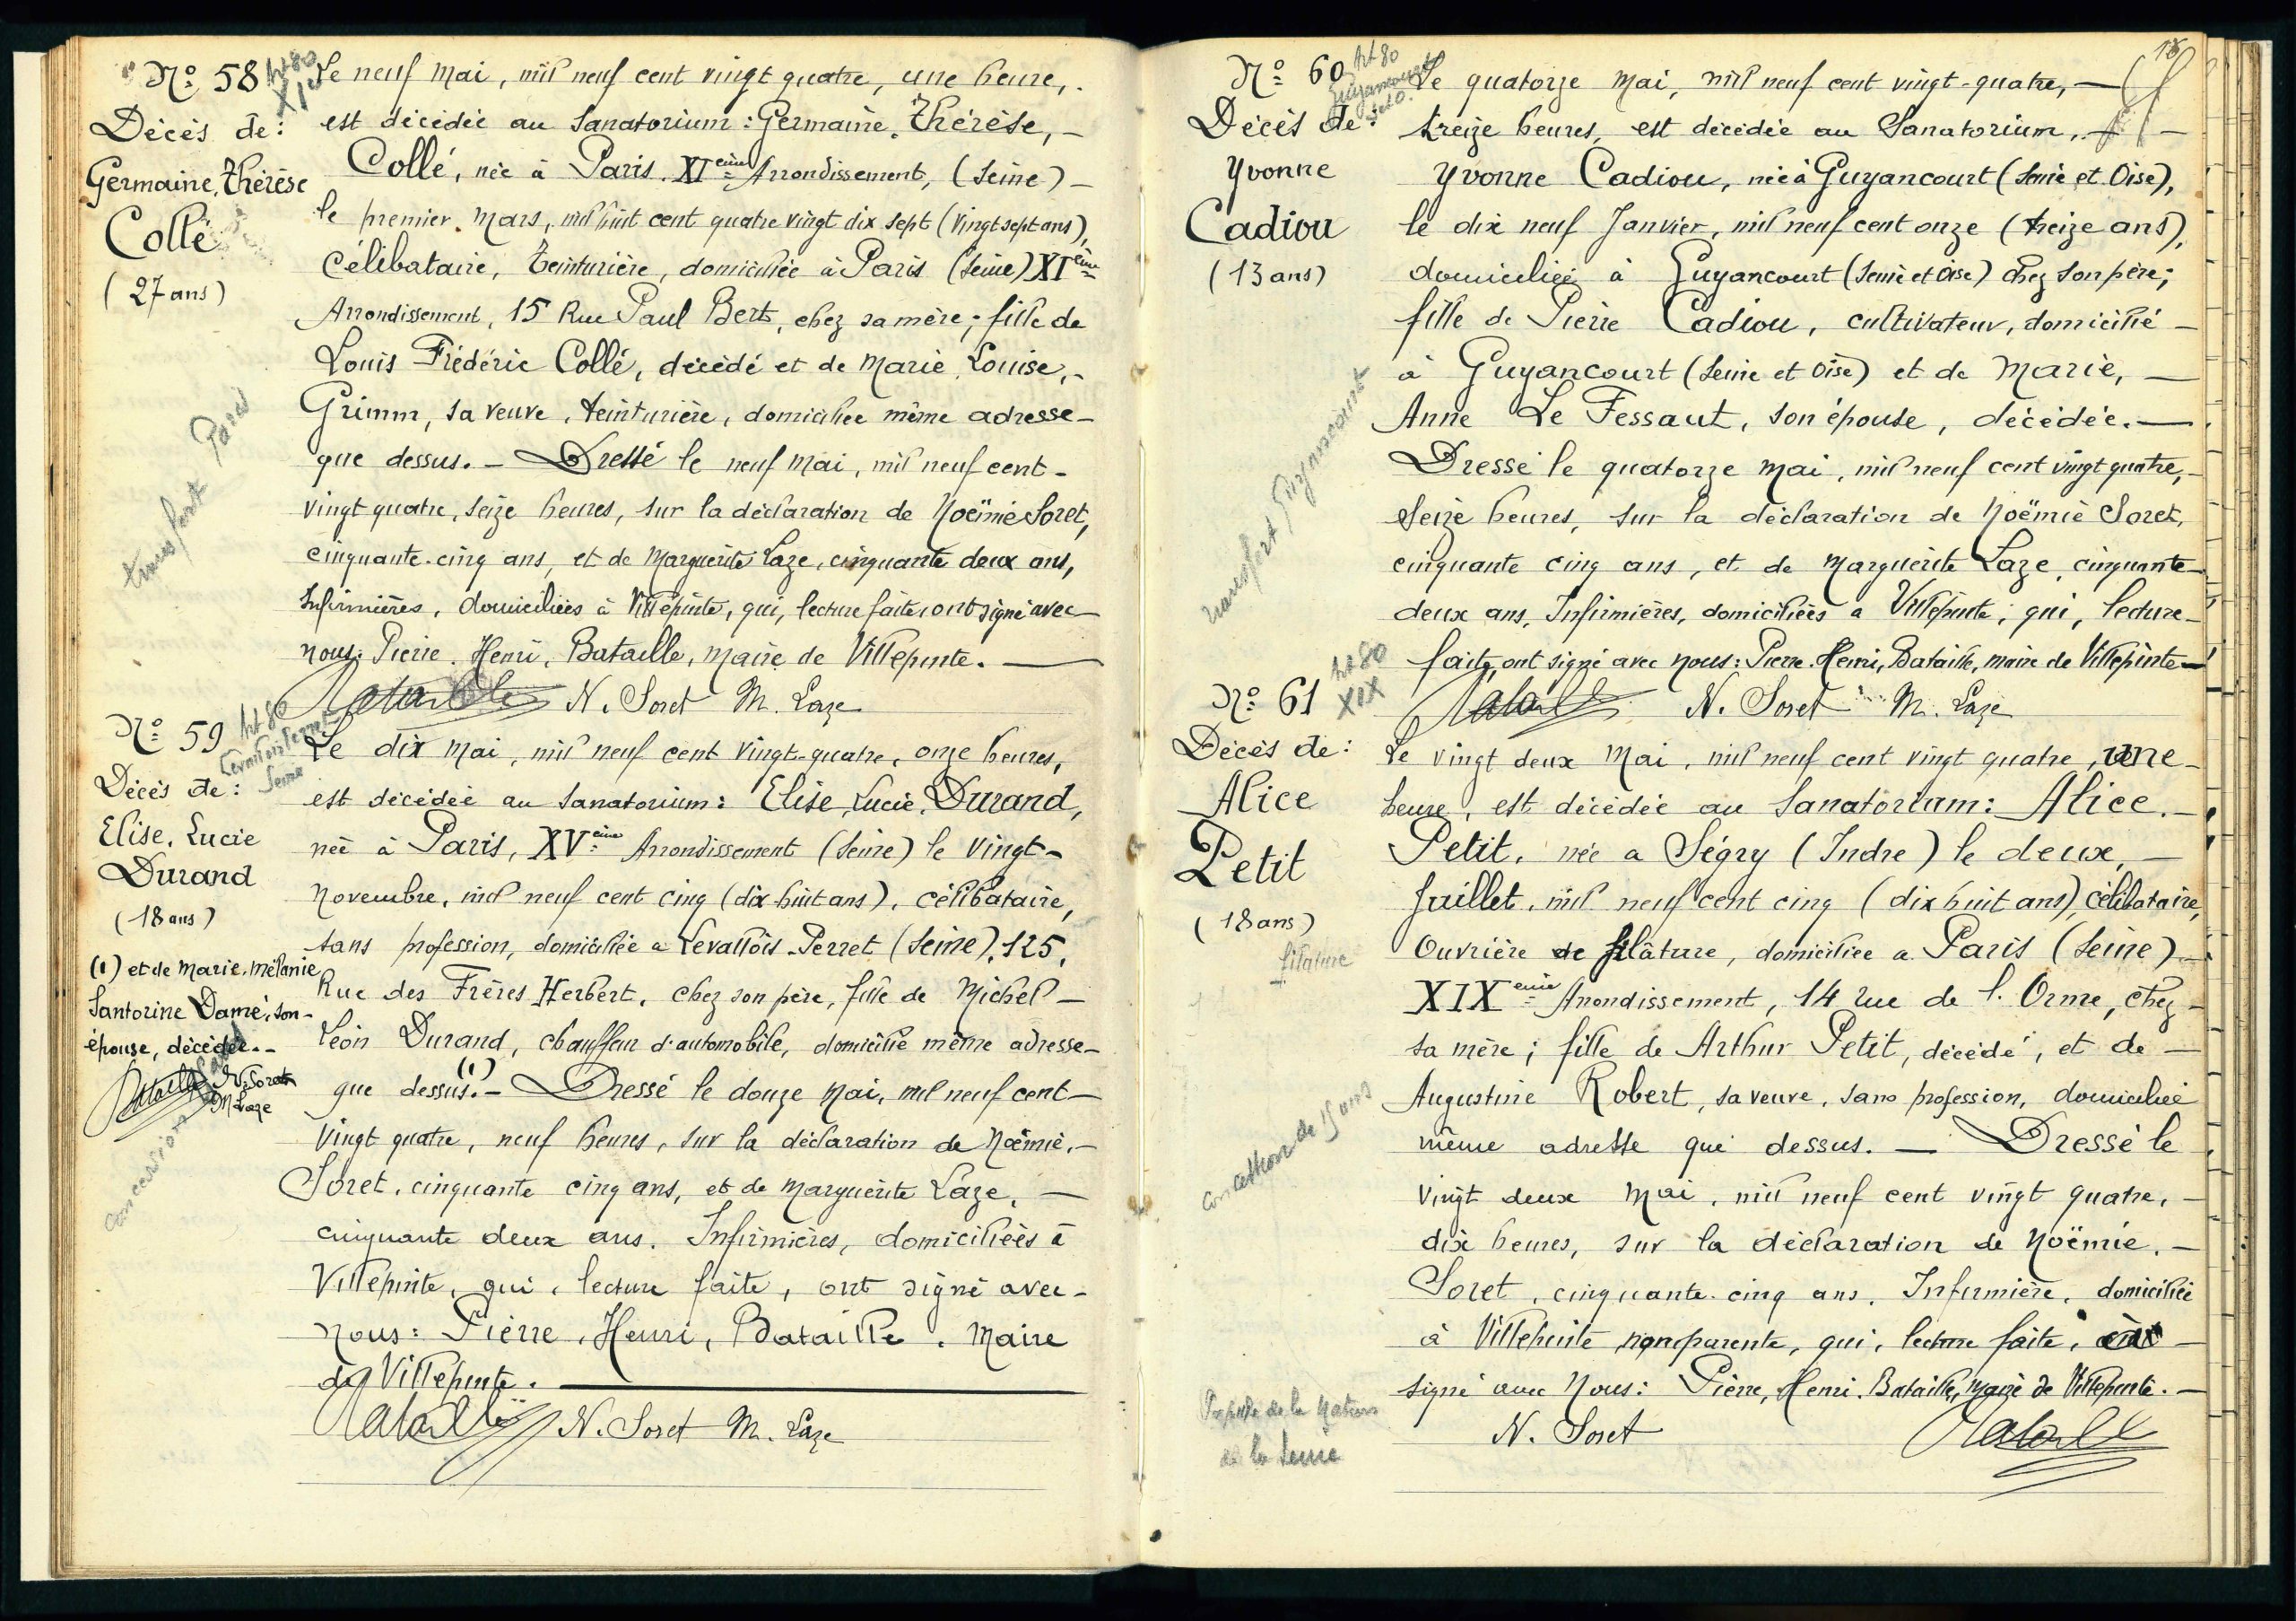 Nº 58
Art 80
XI
Décès de :
Germaine, Thérèse
Collé
(27 ans)
transfert Paris
Le neuf Mai, mil neuf cent vingt quatre, une heure,
est décédée au Sanatorium : Germaine, Thérèse, –
Collé, née à Paris, XIème Arrondissement, (Seine) –
le premier Mars, mil huit cent quatre vingt dix sept (vingt sept ans),
Célibataire, teinturière, domiciliée à Paris (Seine) XIème
Arrondissement, 15 Rue Paul Bert, chez sa mère ; fille de
Louis Frédéric Collé, décédé et de Marie, Louise, –
Grimm, sa veuve, teinturière, domiciliée même adresse –
que dessus. – Dressé le neuf Mai, mil neuf cent –
vingt quatre, seize heures, sur la déclaration de Noëmie Soret,
cinquante cinq ans, et de Marguerite Laze, cinquante deux ans,
Infirmières, domiciliées à Villepinte, qui, lecture faite, ont signé avec
nous : Pierre, Henri, Bataille, Maire de Villepinte. —
Bataille N. Soret M. Laze
Nº 59
Art 80
Levallois Perret
Seine
Décès de :
Elise, Lucie
Durand
(18 ans)
(1) et de Marie, Mélanie
Santorine Damé, son –
épouse, décédée. –
Bataille N. Soret
M. Laze
concession
Le dix Mai, mil neuf cent vingt-quatre, onze heures,
est décédée au Sanatorium : Elise, Lucie, Durand,
née à Paris, XVème Arrondissement (Seine) le vingt –
Novembre, mil neuf cent cinq (dix huit ans), célibataire,
sans profession, domiciliée à Levallois-Perret (Seine), 125,
Rue des Frères Herbert, chez son père, fille de Michel –
Léon Durand, chauffeur d'automobile, domicilié même adresse –
que dessus. (1) – Dressé le douze Mai, mil neuf cent –
vingt quatre, neuf heures, sur la déclaration de Noëmie, –
Soret, cinquante cinq ans, et de Marguerite Laze, —
cinquante deux ans, Infirmières, domiciliées à
Villepinte, qui, lecture faite, ont signé avec –
nous : Pierre, Henri, Bataille, Maire
de Villepinte. —
Bataille N. Soret M. Laze
18
Nº 60
Art 80
Guyancourt
S et O.
Décès de :
Yvonne
Cadiou
(13 ans)
transfert Guyancourt
Le quatorze Mai, mil neuf cent vingt-quatre, —
treize heures, est décédée au Sanatorium, –
Yvonne Cadiou, née à Guyancourt (Seine et Oise),
le dix neuf Janvier, mil neuf cent onze (treize ans),
domiciliée à Guyancourt (Seine et Oise) chez son père ;
fille de Pierre Cadiou, cultivateur, domicilié –
à Guyancourt (Seine et Oise) et de Marie, —
Anne Le Fessaut, son épouse, décédée. —
Dressé le quatorze Mai, mil neuf cent vingt quatre, –
Seize heures, sur la déclaration de Noëmie Soret,
cinquante cinq ans, et de Marguerite Laze, cinquante –
deux ans, Infirmières, domiciliées à Villepinte ; qui, lecture –
faite, ont signé avec nous : Pierre, Henri, Bataille, maire de Villepinte –
Bataille N. Soret M. Laze
Nº 61
Art 80
XIX
Décès de :
Alice
Petit
(18 ans)
filature
concession de 15 ans
Pupille de la Nation
de la Seine
Le vingt deux Mai, mil neuf cent vingt quatre, une –
heure, est décédée au Sanatorium : Alice. –
Petit, née à Ségry (Indre) le deux, —
Juillet, mil neuf cent cinq (dix huit ans), célibataire,
Ouvrière de filâture, domiciliée à Paris (Seine) –
XIXème Arrondissement, 14 rue de l'Orme, chez –
sa mère ; fille de Arthur Petit, décédé, et de —
Augustine Robert, sa veuve, sans profession, domiciliée
même adresse que dessus. — Dressé le
vingt deux Mai, mil neuf cent vingt quatre, –
dix heures, sur la déclaration de Noëmie, –
Soret, cinquante cinq ans, Infirmière, domiciliée
à Villepinte, non parente, qui, lecture faite, –
signé avec Nous : Pierre, Henri, Bataille, Maire de Villepinte. –
N. Soret Bataille